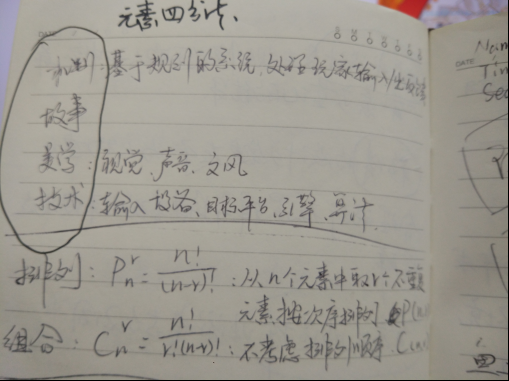 元素四分法.
DATE
机制:基于规则的系统,处理玩家输入/出
故事
美学:视觉、声音、文风
技术:输入设备、目标平台、引擎、算计
排列: P_n^r = n!/(n-r)! :从n个元素中取r个不重
元素按次序排列 P(n
组合: C_n^r = n!/r!(n-r)! :不考虑排列顺序. C(n
DATE
Nam
Tim
Sec